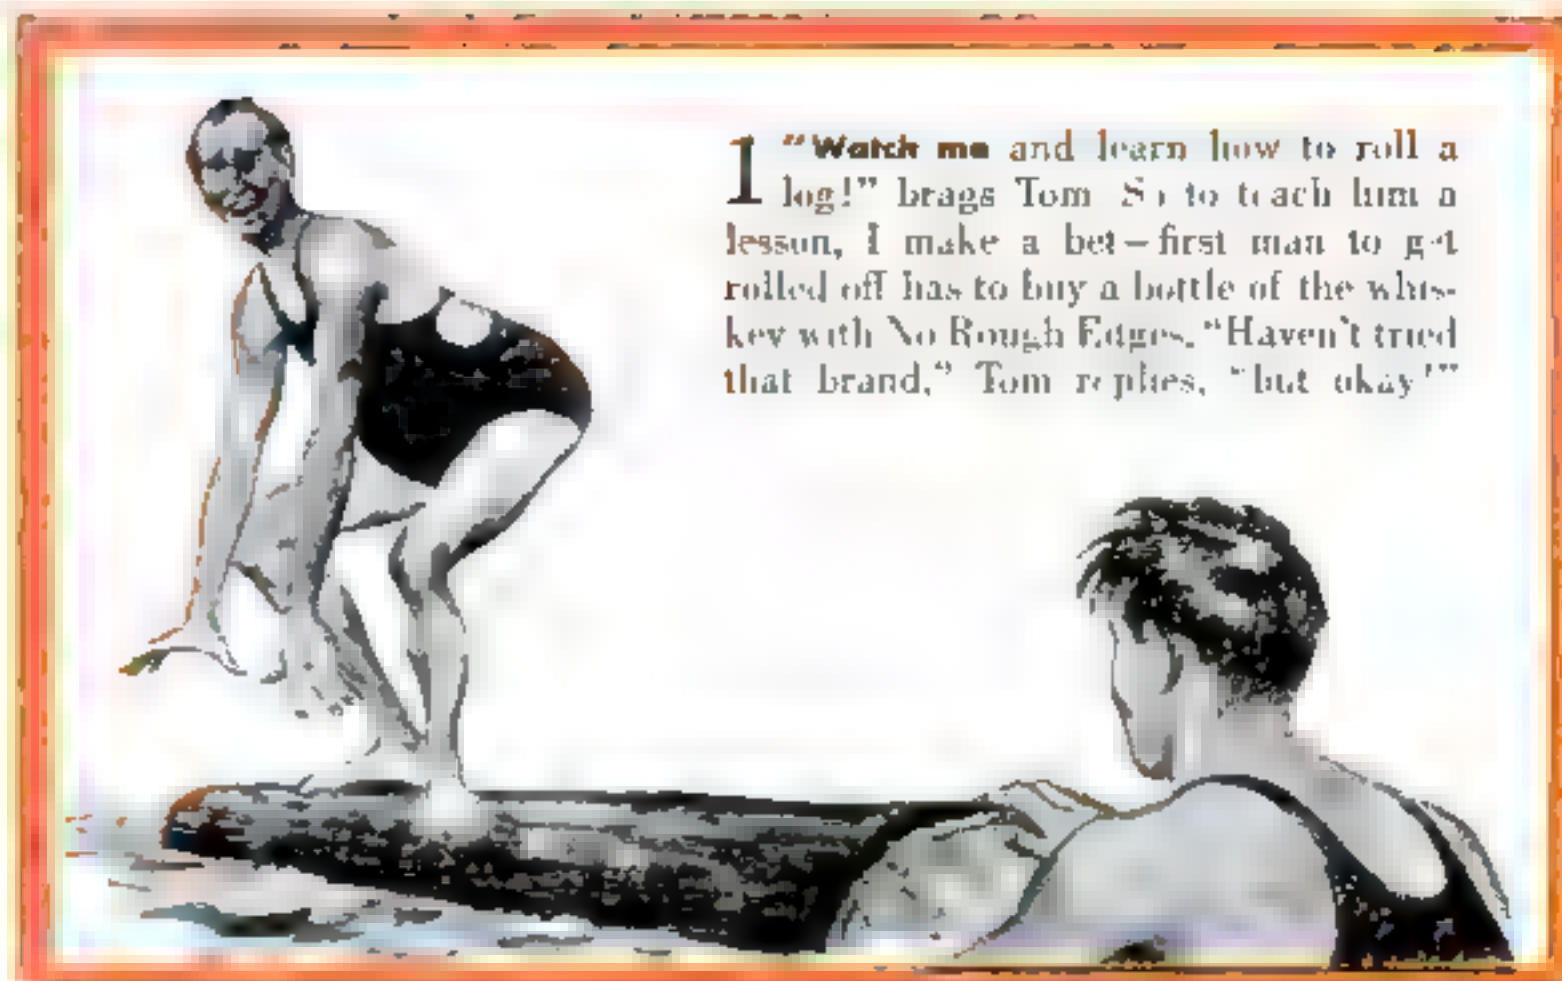 1 "Watch me and learn how to roll a
log!" brags Tom So to teach him a
lesson, I make a bet—first man to get
rolled off has to buy a bottle of the whis-
key with No Rough Edges. "Haven't tried
that brand," Tom replies, "but okay!"